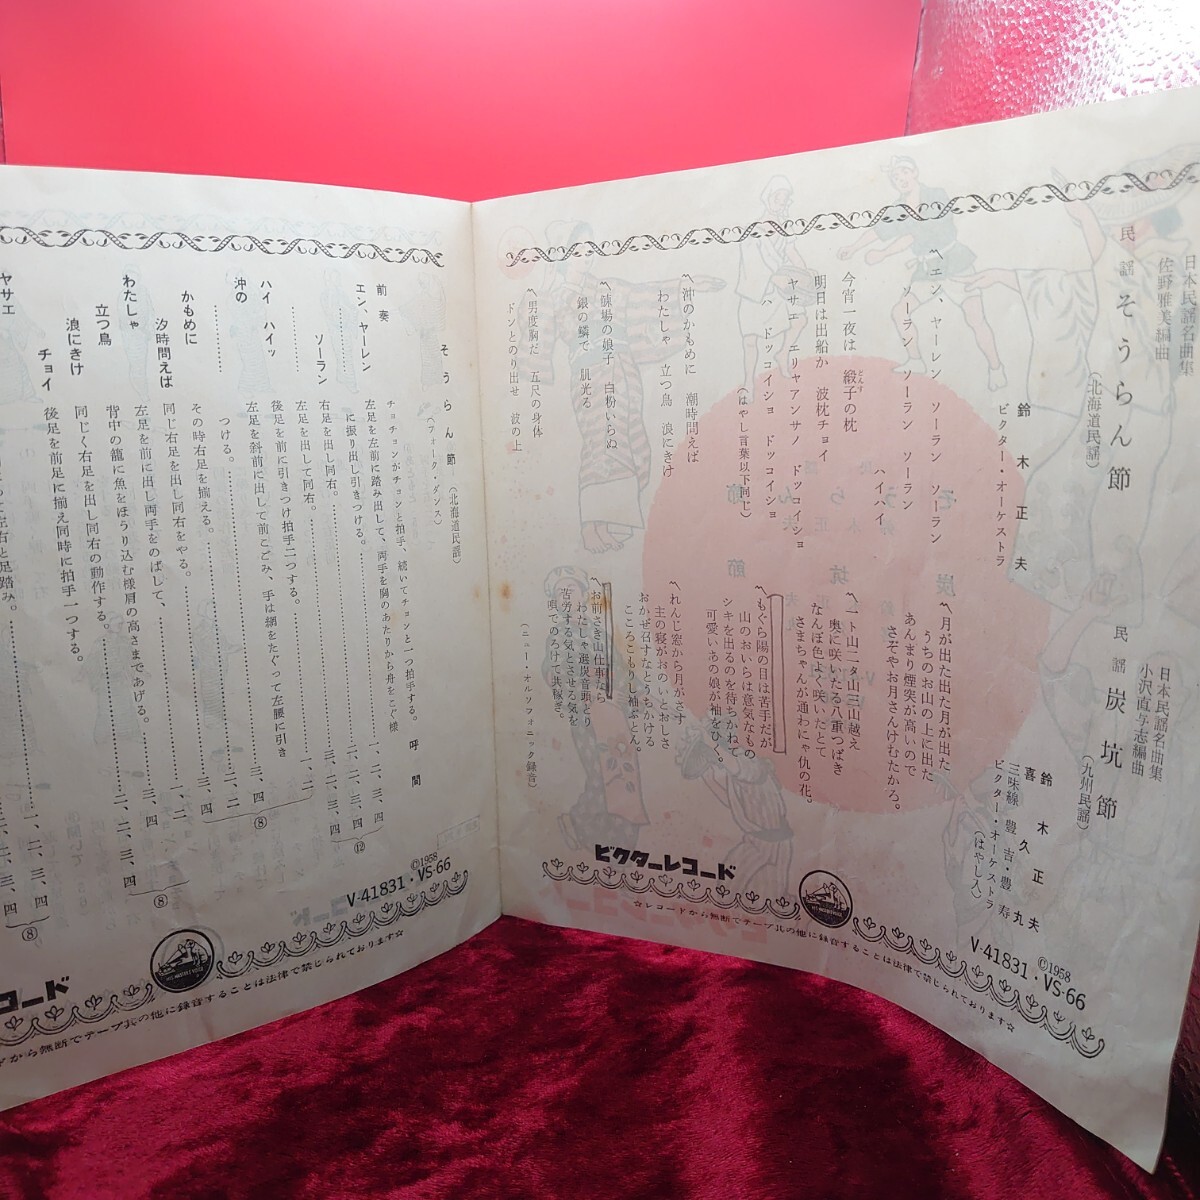 日本民謡名曲集
佐野雅美編曲
民謡 そうらん節
(北海道民謡)
鈴木正夫
ビクター・オーケストラ
〽エン、ヤーレン ソーラン ソーラン
ソーラン ソーラン ソーラン
ハイハイ
今宵一夜は 緞子の枕
どんす
明日は出船か 波枕チョイ
ヤサエ エリヤアンサノ ドッコイショ
ハ ドッコイショ ドッコイショ
(はやし言葉以下同じ)
〽沖のかもめに 潮時問えば
わたしゃ 立つ鳥 浪にきけ
〽鰊場の娘子 白粉いらぬ
銀の鱗で 肌光る
〽男度胸だ 五尺の身体
ドンとのり出せ 波の上
日本民謡名曲集
小沢直与志編曲
民謡 炭坑節
(九州民謡)
鈴木正夫
喜久丸
三味線 豊吉・豊寿
ビクター・オーケストラ
(はやし人)
〽月が出た出た月が出た
うちのお山の上に出た
あんまり煙突が高いので
さぞやお月さんけむたかろ。
〽一ト山二タ山三山越え
奥に咲いたる八重つばき
なんぼ色よく咲いたとて
さまちゃんが通わにゃ仇の花。
〽もぐら陽の目は苦手だが
山のおいらは意気なもの
シキを出るのを待ちかねて
可愛いあの娘が袖をひく。
〽れんじ窓から月がさす
主の寝がおのいとおしさ
おかぜ召すなとうちかける
こころこもりし袖ぶとん。
〽お前さき山仕事なら
わたしゃ選炭音頭とり
苦労する気とさせる気を
唄でのろけて共稼ぎ。
(ニュー・オルソフォニック録音)
ビクターレコード
©1958
V-41831・VS-66
☆レコードから無断でテープ其の他に録音することは法律で禁じられております☆
そうらん節 (北海道民謡)
(フォーク・ダンス)
呼間
前奏
チョチョンがチョンと拍手、続いてチョンと一つ拍手する。
エン、ヤーレン
左足を左前に踏み出して、両手を胸のあたりから舟をこぐ様
に振り出し引きつける。 一、二、三、四
右足を出し同右。 一、二、三、四
ソーラン
左足を出して同右。 一、二、三、四
⑫
後足を前に引きつけ拍手二つする。
ハイ ハイッ
左足を斜前に出して前こごみ、手は網をたぐって左腰に引き
沖の
つける。 一、二
その時右足を揃える。 三、四
⑧
かもめに
同じ右足を出し同右をやる。
汐時問えば
左足を前に出し両手をのばして、
わたしゃ
背中の籠に魚をほうり込む様肩の高さまであげる。
立つ鳥
同じく右足を出し同右の動作する。
浪にきけ
後足を前足に揃え同時に拍手一つする。
チョイ
ヤサエ
⑧
⑧
©1958
V-41831・VS-66
コード
から無断でテープ其の他に録音することは法律で禁じられております☆